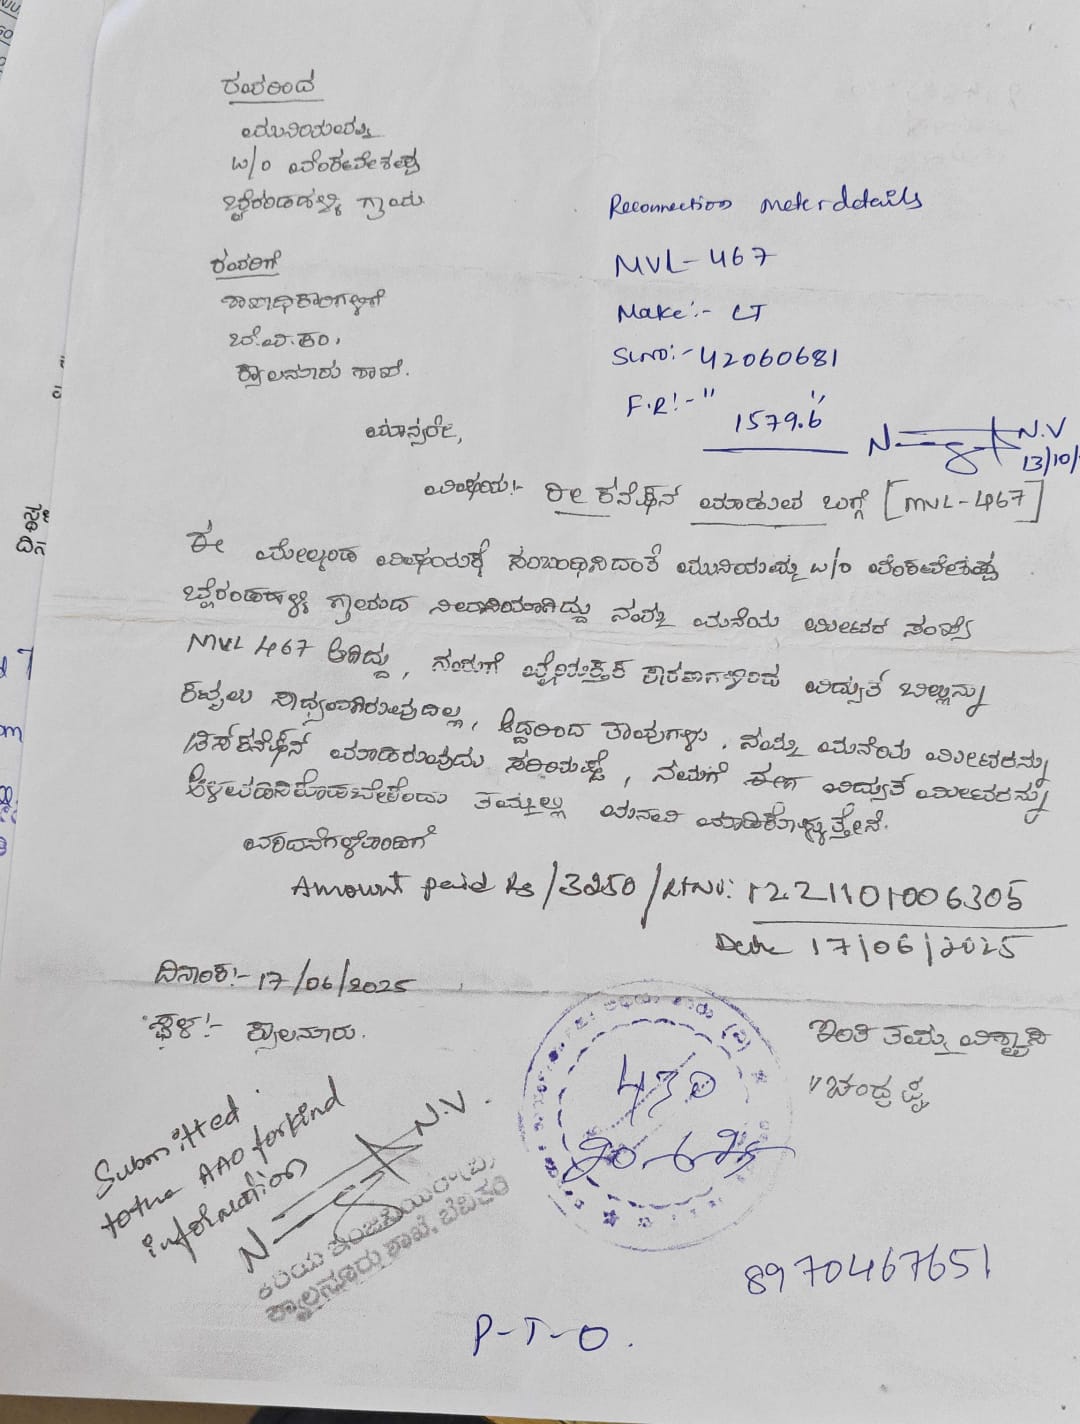 ರವರಿಂದ
ಮುನಿಯಮ್ಮ
w/o ವೆಂಕಟೇಶಪ್ಪ
ಬೈರಂಡಹಳ್ಳಿ ಗ್ರಾಮ
Reconnection meter details
MVL-467
Make:- LT
Sl.no:- 42060681
F.R:- "1579.6"
N.V
13/10/
ರವರಿಗೆ
ಶಾಖಾಧಿಕಾರಿಗಳಿಗೆ
ಬೆ.ವಿ.ಕಂ,
ಕ್ಯಾಲನೂರು ಶಾಖೆ.
ಮಾನ್ಯರೇ,
ವಿಷಯ:- ರೀ ಕನೆಕ್ಷನ್ ಮಾಡುವ ಬಗ್ಗೆ [MVL-467]
ಈ ಮೇಲ್ಕಂಡ ವಿಷಯಕ್ಕೆ ಸಂಬಂಧಿಸಿದಂತೆ ಮುನಿಯಮ್ಮ w/o ವೆಂಕಟೇಶಪ್ಪ
ಬೈರಂಡಹಳ್ಳಿ ಗ್ರಾಮದ ನಿವಾಸಿಯಾಗಿದ್ದು ನಮ್ಮ ಮನೆಯ ಮೀಟರ್ ಸಂಖ್ಯೆ
MVL 467 ಆಗಿದ್ದು, ನಮಗೆ ವೈಯಕ್ತಿಕ ಕಾರಣಗಳಿಂದ ವಿದ್ಯುತ್ ಬಿಲ್ಲನ್ನು
ಕಟ್ಟಲು ಸಾಧ್ಯವಾಗಿರುವುದಿಲ್ಲ, ಆದ್ದರಿಂದ ತಾವುಗಳು, ನಮ್ಮ ಮನೆಯ ಮೀಟರನ್ನು
ಡಿಸ್ಕನೆಕ್ಷನ್ ಮಾಡಿರುವುದು ಸರಿಯಷ್ಟೆ, ನಮಗೆ ಈಗ ವಿದ್ಯುತ್ ಮೀಟರನ್ನು
ಅಳವಡಿಸಿಕೊಡಬೇಕೆಂದು ತಮ್ಮಲ್ಲಿ ಮನವಿ ಮಾಡಿಕೊಳ್ಳುತ್ತೇನೆ.
ವಂದನೆಗಳೊಂದಿಗೆ
Amount paid Rs/3250/Rt No: 1221101006305
Date 17/06/2025
ದಿನಾಂಕ:- 17/06/2025
ಸ್ಥಳ:- ಕ್ಯಾಲನೂರು.
ಇಂತಿ ತಮ್ಮ ವಿಶ್ವಾಸಿ
ಚಂದ್ರಪ್ಪ
430
20-6-25
Submitted
to the AAO for kind
information
N.V.
ಕಿರಿಯ ಇಂಜಿನಿಯರ್(ವಿ)
ಕ್ಯಾಲನೂರು ಶಾಖೆ, ಬೆವಿಕಂ
8970467651
P-T-O.